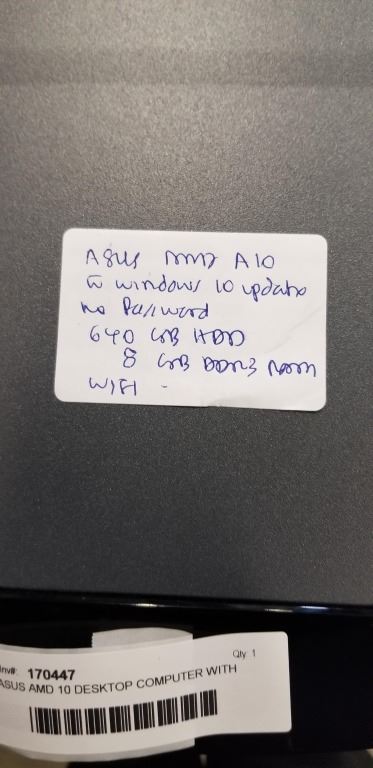 ASUS AMD A10
w windows 10 update
no Password
640 GB HDD
8 GB DDR3 RAM
WIFI -
Inv#: 170447
Qty: 1
ASUS AMD 10 DESKTOP COMPUTER WITH